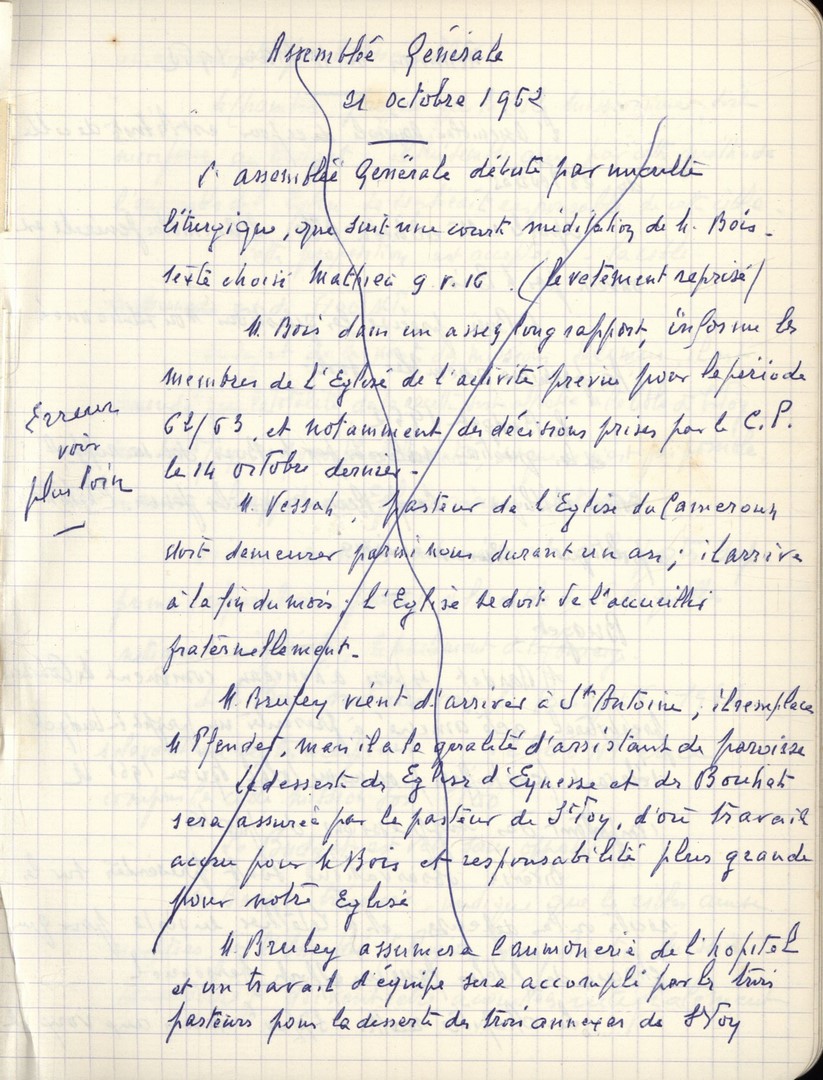 Assemblée Générale
21 octobre 1962
L'assemblée Générale débute par un culte
liturgique, que suit une courte méditation de M. Bois.
texte choisi Mathieu 9 v. 16. (le vetêment reprisé)
M. Bois dans un assez long rapport, informe les
membres de l'Eglise de l'activité prévue pour la période
62/63, et notamment des décisions prises par le C.P.
le 14 octobre dernier.
Erreur
voir
plus loin
M. Vessah, pasteur de l'Eglise du Cameroun
doit demeurer parmi nous durant un an ; il arrive
à la fin du mois ; L'Eglise se doit de l'accueillir
fraternellement.
M. Bruley vient d'arriver à St Antoine ; il remplace
M Pfender, mais il a la qualité d'assistant de paroisse
La desserte des Eglises d'Eynesse et de
sera assurée par le pasteur de Ste Foy, d'où travail
accru pour M Bois et responsabilité plus grande
pour notre Eglise
M. Bruley assumera l'aumonerie de l'hopital
et un travail d'équipe sera accompli par les trois
pasteurs pour la desserte des trois annexes de Ste Foy